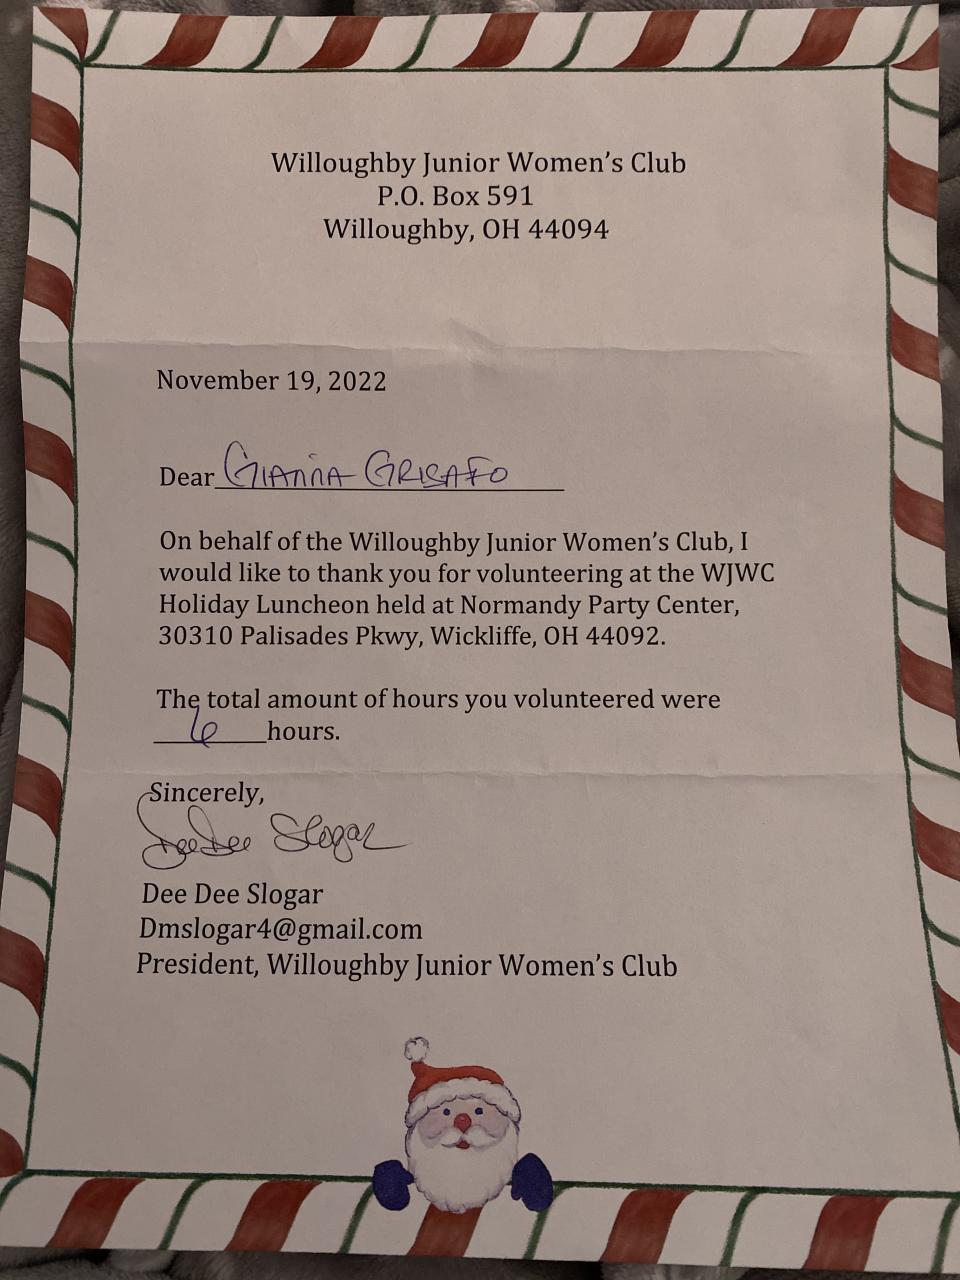 Willoughby Junior Women's Club
P.O. Box 591
Willoughby, OH 44094
November 19, 2022
Dear GIANNA GRISAFO
On behalf of the Willoughby Junior Women's Club, I
would like to thank you for volunteering at the WJWC
Holiday Luncheon held at Normandy Party Center,
30310 Palisades Pkwy, Wickliffe, OH 44092.
The total amount of hours you volunteered were
6 hours.
Sincerely,
DeeDee Slogar
Dee Dee Slogar
Dmslogar4@gmail.com
President, Willoughby Junior Women's Club